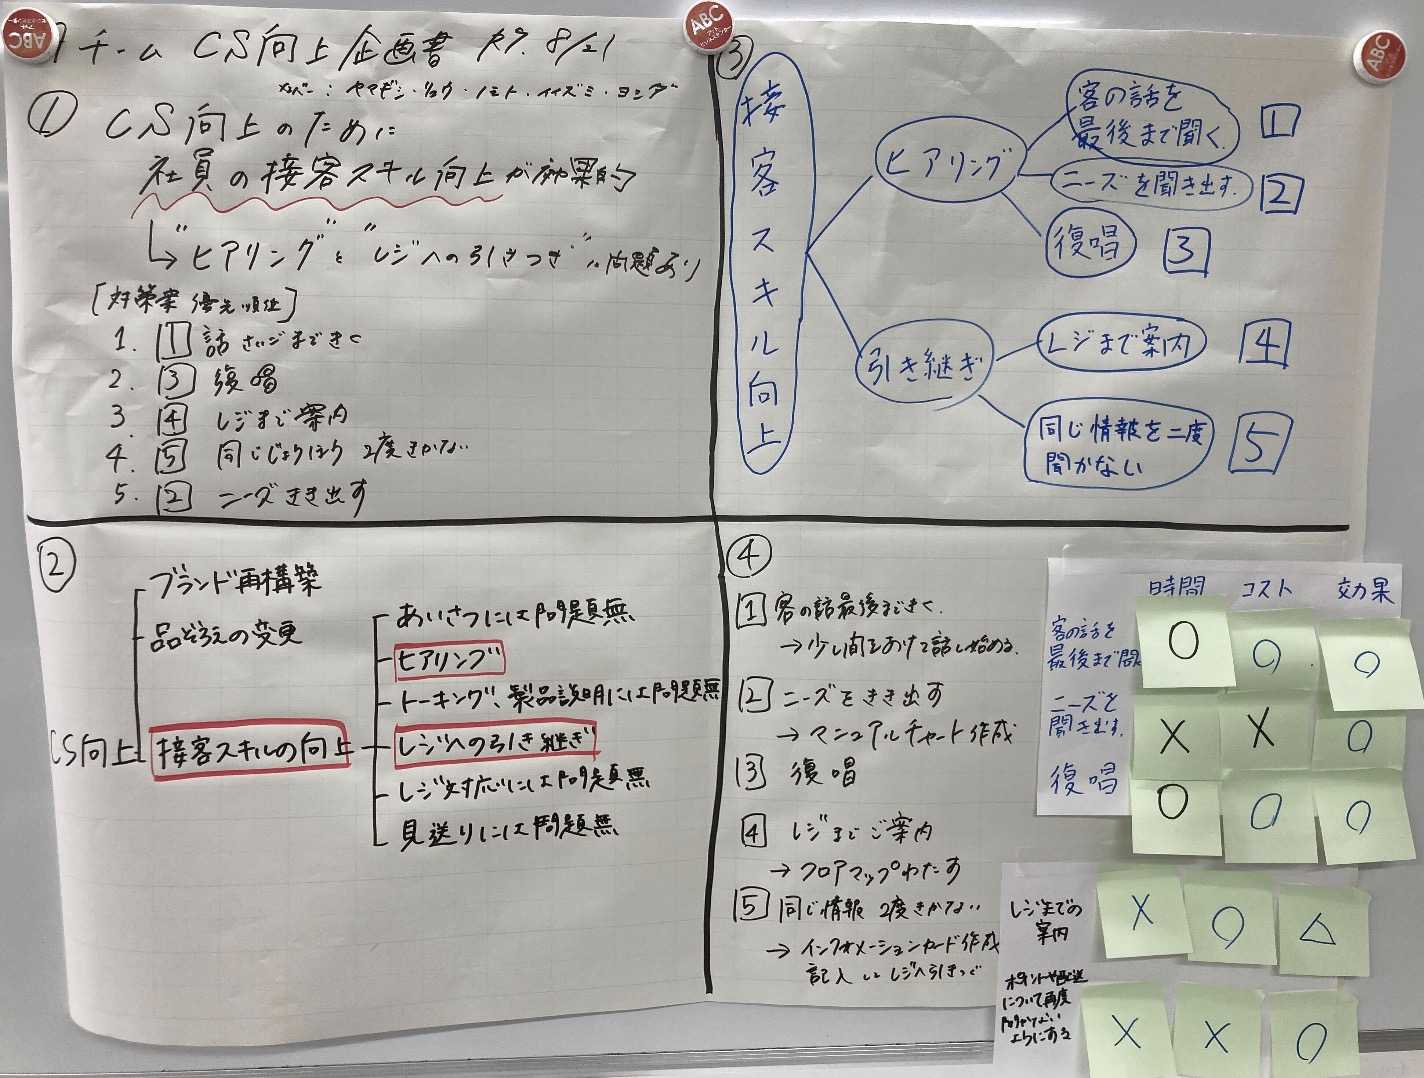 チーム CS向上企画書 R7. 8/21
メンバー：ヤマギシ・リョウ・ノモト・イイズミ・ヨシダ
① CS向上のために
社員の接客スキル向上が効果的
↳ "ヒアリング"と"レジへの引きつぎ"に問題あり
[対策案 優先順位]
1. 1 話さいごまできく
2. 3 復唱
3. 4 レジまで案内
4. 5 同じじょうほう 2度きかない
5. 2 ニーズきき出す
②
ブランド再構築
品ぞろえの変更
CS向上
接客スキルの向上
あいさつには問題無
ヒアリング
トーキング、製品説明には問題無
レジへの引き継ぎ
レジ対応には問題無
見送りには問題無
③
接客スキル向上
ヒアリング
客の話を
最後まで聞く。
1
ニーズを聞き出す。
2
復唱
3
引き継ぎ
レジまで案内
4
同じ情報を二度
聞かない
5
④
1 客の話最後まできく。
→少し間をあけて話し始める。
2 ニーズをきき出す
→マニュアルチャート作成
3 復唱
4 レジまでご案内
→フロアマップわたす
5 同じ情報 2度きかない
→インフォメーションカード作成
記入しレジへ引きつぐ
時間 コスト 効果
客の話を
最後まで聞
○ ○ ○
ニーズを
聞き出す。
× × ○
復唱
○ ○ ○
レジまでの
案内
× ○ △
ポイントや配送
について再度
ようにする
× × ○
ABC
ABC
ABC